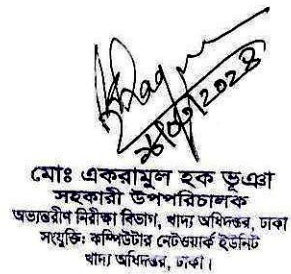 ২৪/০৮/২০২৪
মোঃ একরামুল হক ভূঞা
সহকারী উপপরিচালক
অভ্যন্তরীণ নিরীক্ষা বিভাগ, খাদ্য অধিদপ্তর, ঢাকা
সংযুক্তি: কম্পিউটার নেটওয়ার্ক ইউনিট
খাদ্য অধিদপ্তর, ঢাকা।